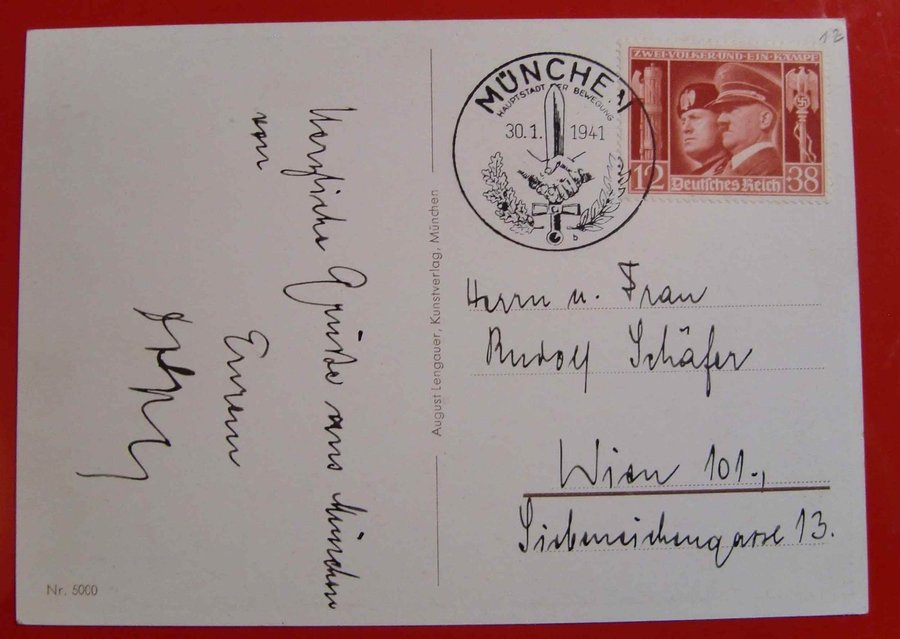 12
ZWEI VÖLKER UND EIN KAMPF
12 Deutsches Reich 38
MÜNCHEN
HAUPTSTADT DER BEWEGUNG
30.1. 1941
b
Herzliche Grüße aus München
von
Eurem
August Lengauer, Kunstverlag, München
Herrn u. Frau
Rudolf Schäfer
Wien 101.,
Siebeneichengasse 13.
Nr. 5000